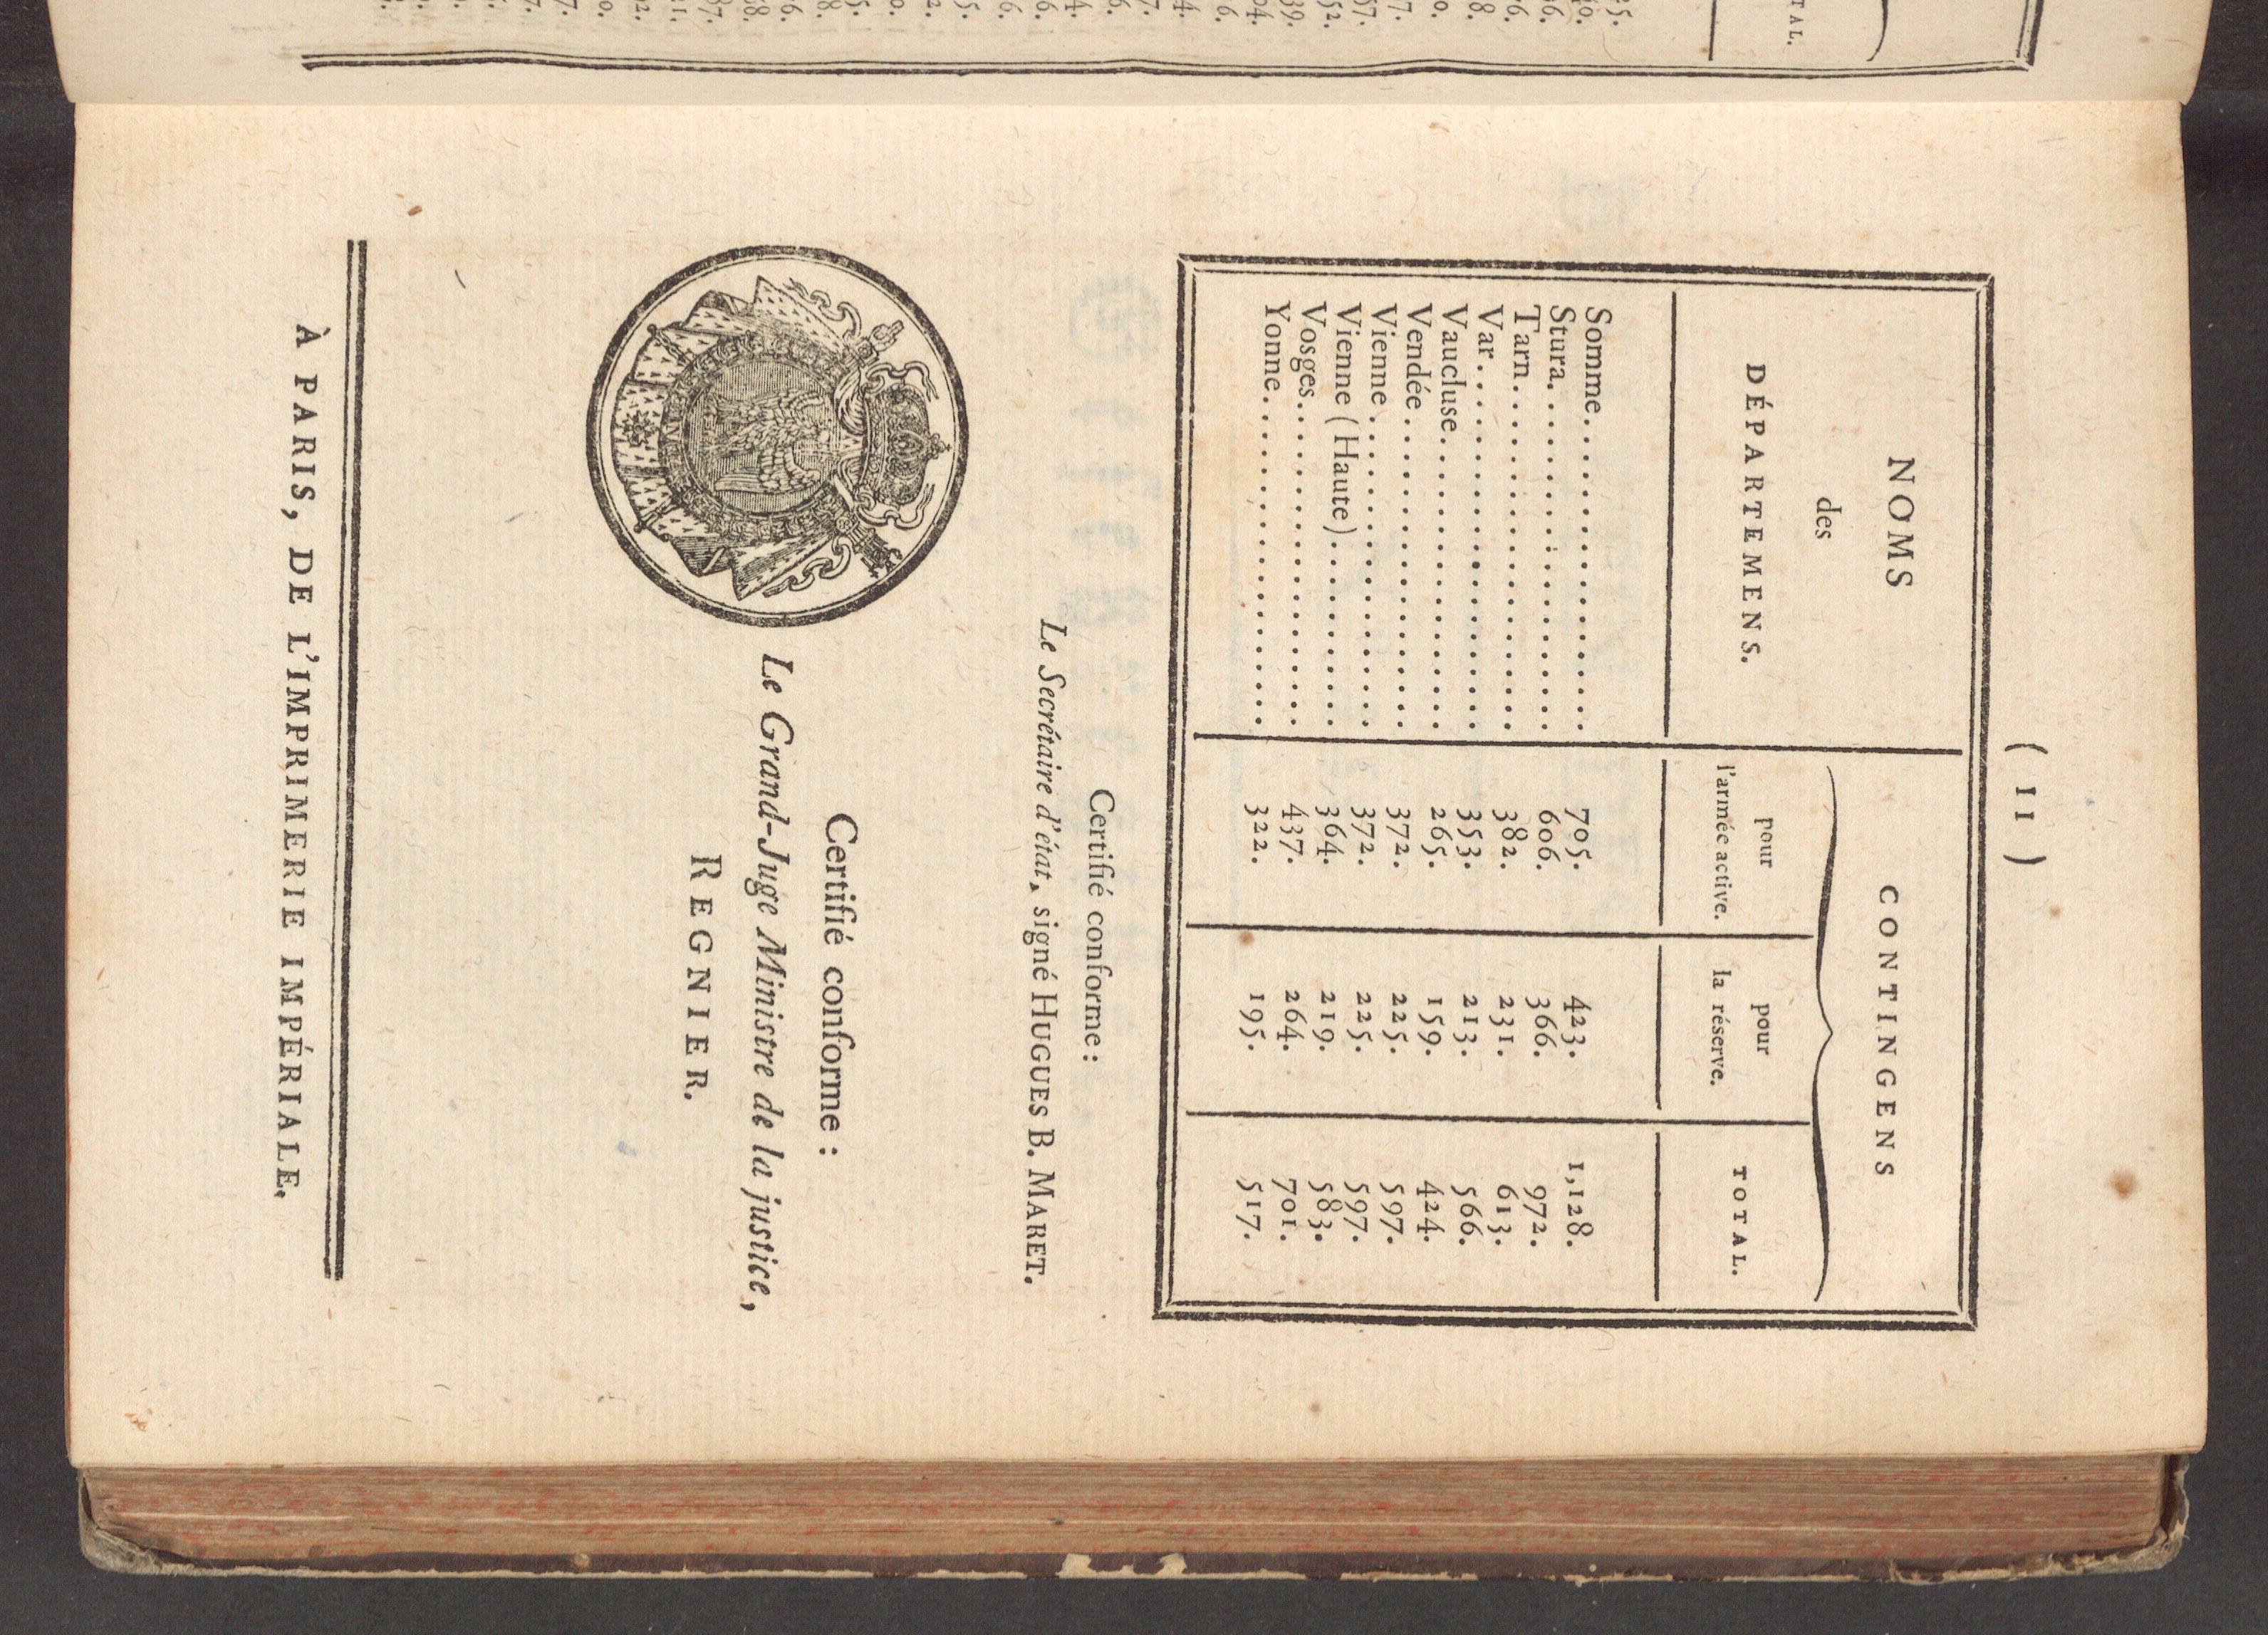 ( 11 )
NOMS
des
DÉPARTEMENS.
CONTINGENS
pour
l'armée active.
pour
la réserve.
TOTAL.
Somme........................ 705. 423. 1,128.
Stura........................ 606. 366. 972.
Tarn........................ 382. 231. 613.
Var........................ 353. 213. 566.
Vaucluse........................ 265. 159. 424.
Vendée........................ 372. 225. 597.
Vienne........................ 372. 225. 597.
Vienne (Haute)............... 364. 219. 583.
Vosges........................ 437. 264. 701.
Yonne........................ 322. 195. 517.
Certifié conforme :
Le Secrétaire d'état, signé HUGUES B. MARET.
Certifié conforme :
Le Grand-Juge Ministre de la justice,
REGNIER.
À PARIS, DE L'IMPRIMERIE IMPÉRIALE.